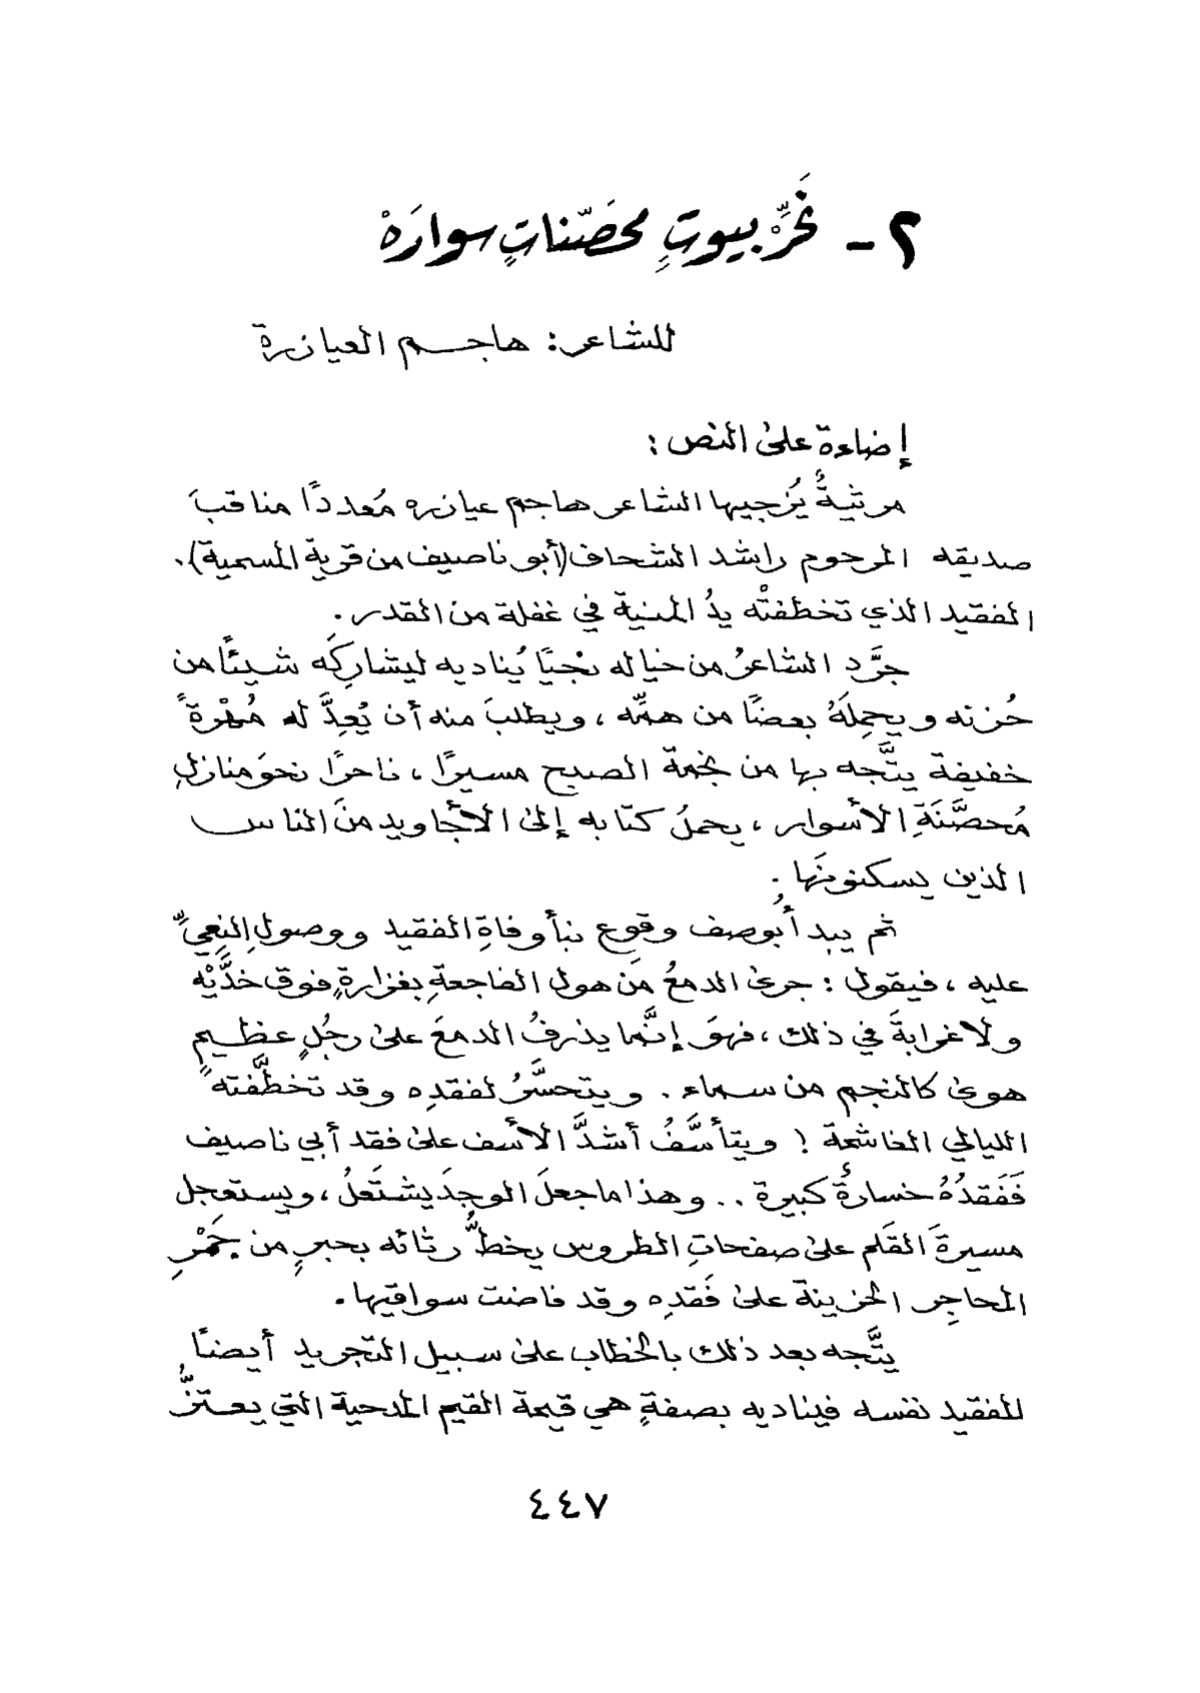 ٢ - نَحِّرْ بيوتٍ محصَّناتٍ سوارَهْ
للشاعر: هاجم العيازرة
إضاءة على النص:
مرثيةٌ يُزجيها الشاعر هاجم عيازره مُعددًا مناقبَ
صديقه المرحوم راشد الشحاف (أبو ناصيف من قرية المسمية).
الفقيد الذي تخطفتْه يدُ المنية في غفلة من القدر.
جرَّد الشاعرُ من خياله نجيًا يُناديه ليشاركَه شيئًا من
حُزنه ويحمِلَهُ بعضًا من همِّه، ويطلبَ منه أن يُعِدَّ له مُهْرةً
خفيفة يتَّجه بها من نجمة الصبح مسيرًا، ناحرًا نحوَ منازلِ
مُحصَّنَةِ الأسوار، يحملُ كتابه إلى الأجاويد منَ الناس
الذين يسكنونَها.
ثم يبدأُ بوصف وقوعِ نبأ وفاةِ الفقيد ووصولِ النعِيِّ
عليه، فيقول: جرى الدمعُ من هول الفاجعةِ بغزارةٍ فوق خدَّيْه
ولا غرابةَ في ذلك، فهوَ إنَّما يذرفُ الدمعَ على رجُلٍ عظيمٍ
هوى كالنجم من سماء. ويتحسَّرُ لفقدِه وقد تخطَّفته
الليالي الغاشمة! ويتأسَّفُ أشدَّ الأسف على فقد أبي ناصيف
فَفَقدُهُ خسارةٌ كبيرة.. وهذا ما جعلَ الوجدَ يشتَعلُ، ويستعجل
مسيرةَ القلم على صفحاتِ الطروس يخطُّ رثائه بحبرٍ من جَمْرِ
المحاجِر الحزينة على فَقدِه وقد فاضت سواقيها.
يتَّجه بعد ذلك بالخطاب على سبيل التجريد أيضًا
للفقيد نفسه فيناديه بصفةٍ هي قيمة القيم المدحية التي يعتزُّ
٤٤٧